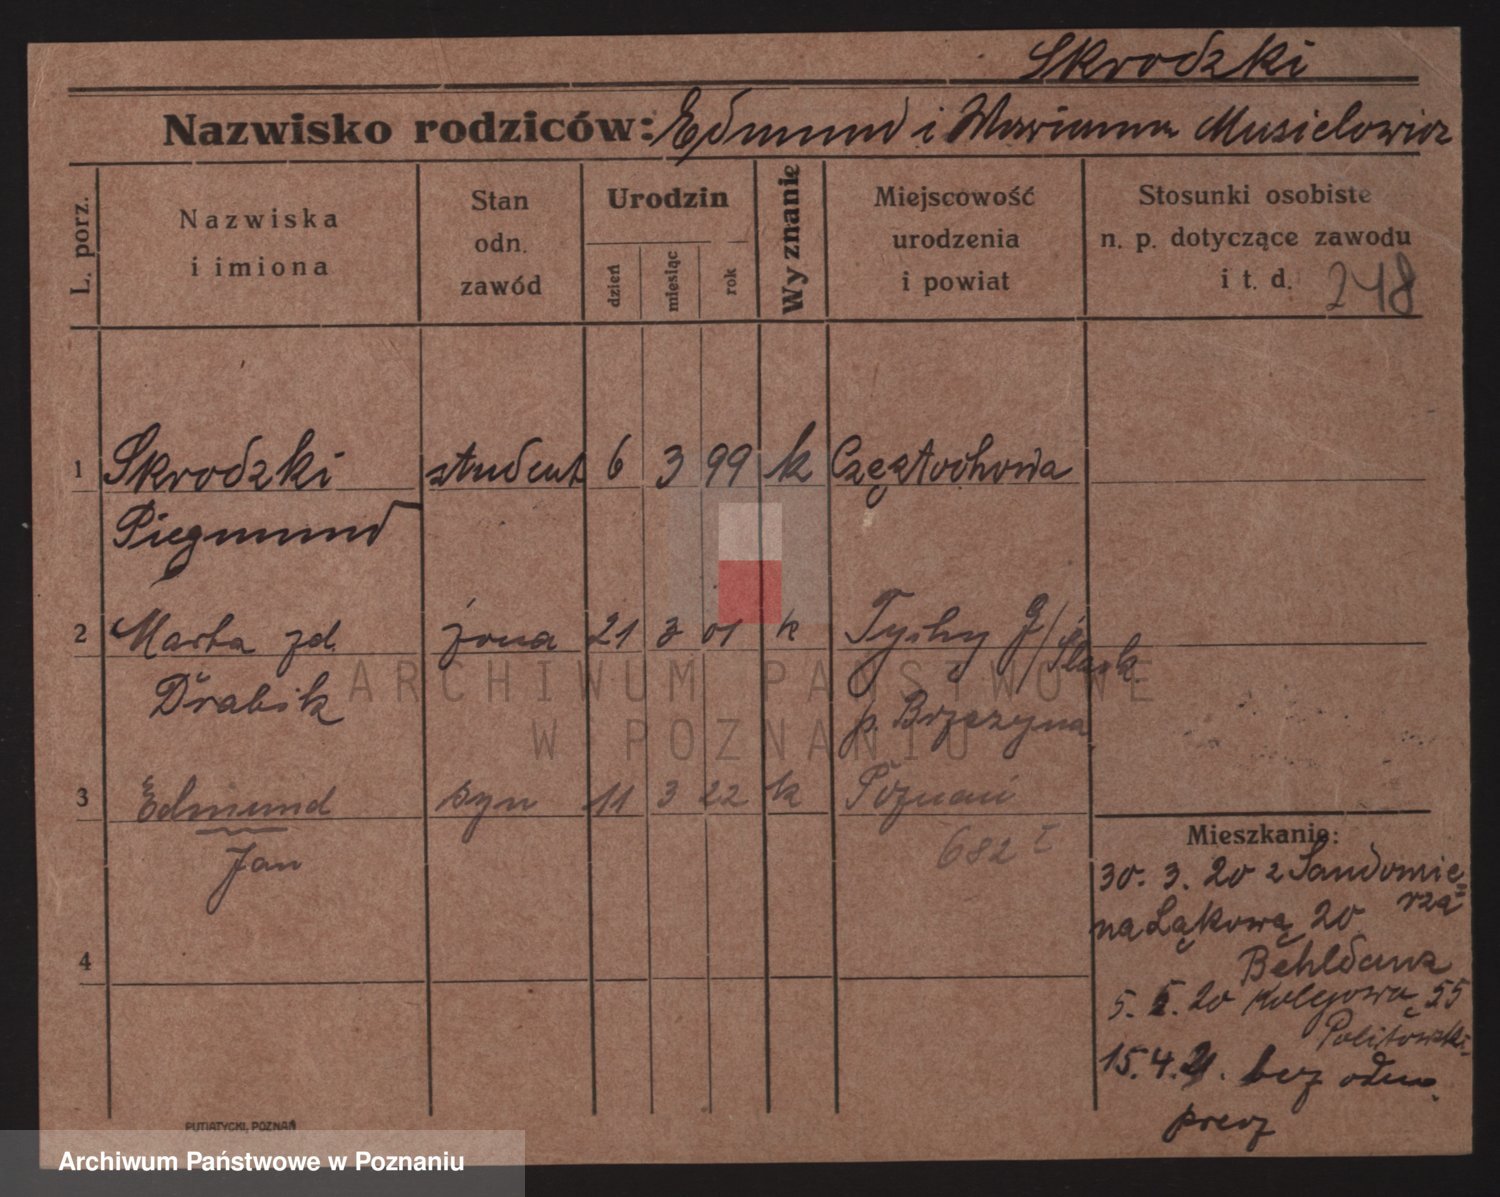 Skrodzki
Nazwisko rodziców: Edmund i Marianna Musielowicz
L. porz.
Nazwiska
i imiona
Stan
odn.
zawód
Urodzin
dzień
miesiąc
rok
Wyznanie
Miejscowość
urodzenia
i powiat
Stosunki osobiste
n. p. dotyczące zawodu
i t. d. 248
1 Skrodzki student 6 3 99 k Częstochowa
2 Marta zd. żona 21 3 01 k Tychy G/
Śląsk.
Drabik
p.
3 Edmund syn 11 3 22 k Poznań
Jan
682
4
Mieszkanie:
30. 3. 20 z Sandomie=
rza
na Łąkową 20
5. 5. 20 Kolejowa 55
15. 4. 21. bez odm.
PUTIATYCKI, POZNAŃ
ARCHIWUM PAŃSTWOWE
W POZNANIU
Archiwum Państwowe w Poznaniu